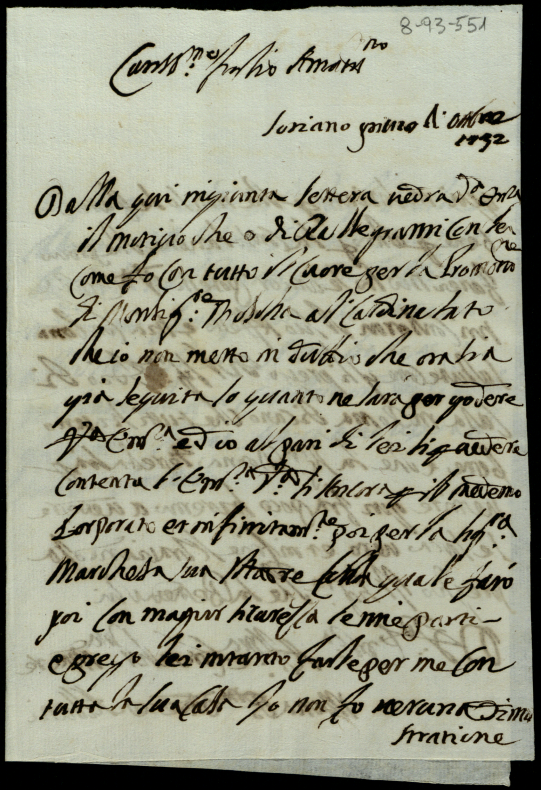 8-93-551
Cariss.mo figlio Amatiss.mo
Soriano primo di ottobre
1732
Dalla qui ingiunta lettera vedrà V.ra Em.za
il motivo che o di Rallegrarmi con lei
come fo con tutto il cuore per la Promotione
di Monsig.re Mosca al Cardinalato
che io non metto in dubbio che ora sia
gia seguita lo quanto ne sarà per godere
V.ra Em.za ed io al pari di lei
contenta l'Em.za V.ra il medemo
Porporato et infinitam.te poi per la Sig.ra
Marchesa sua Madre alla quale farò
poi con maggior le mie parti
e prego lei intanto farle per me con
tutta la sua Casa Io non fo veruna Dimo
stratione